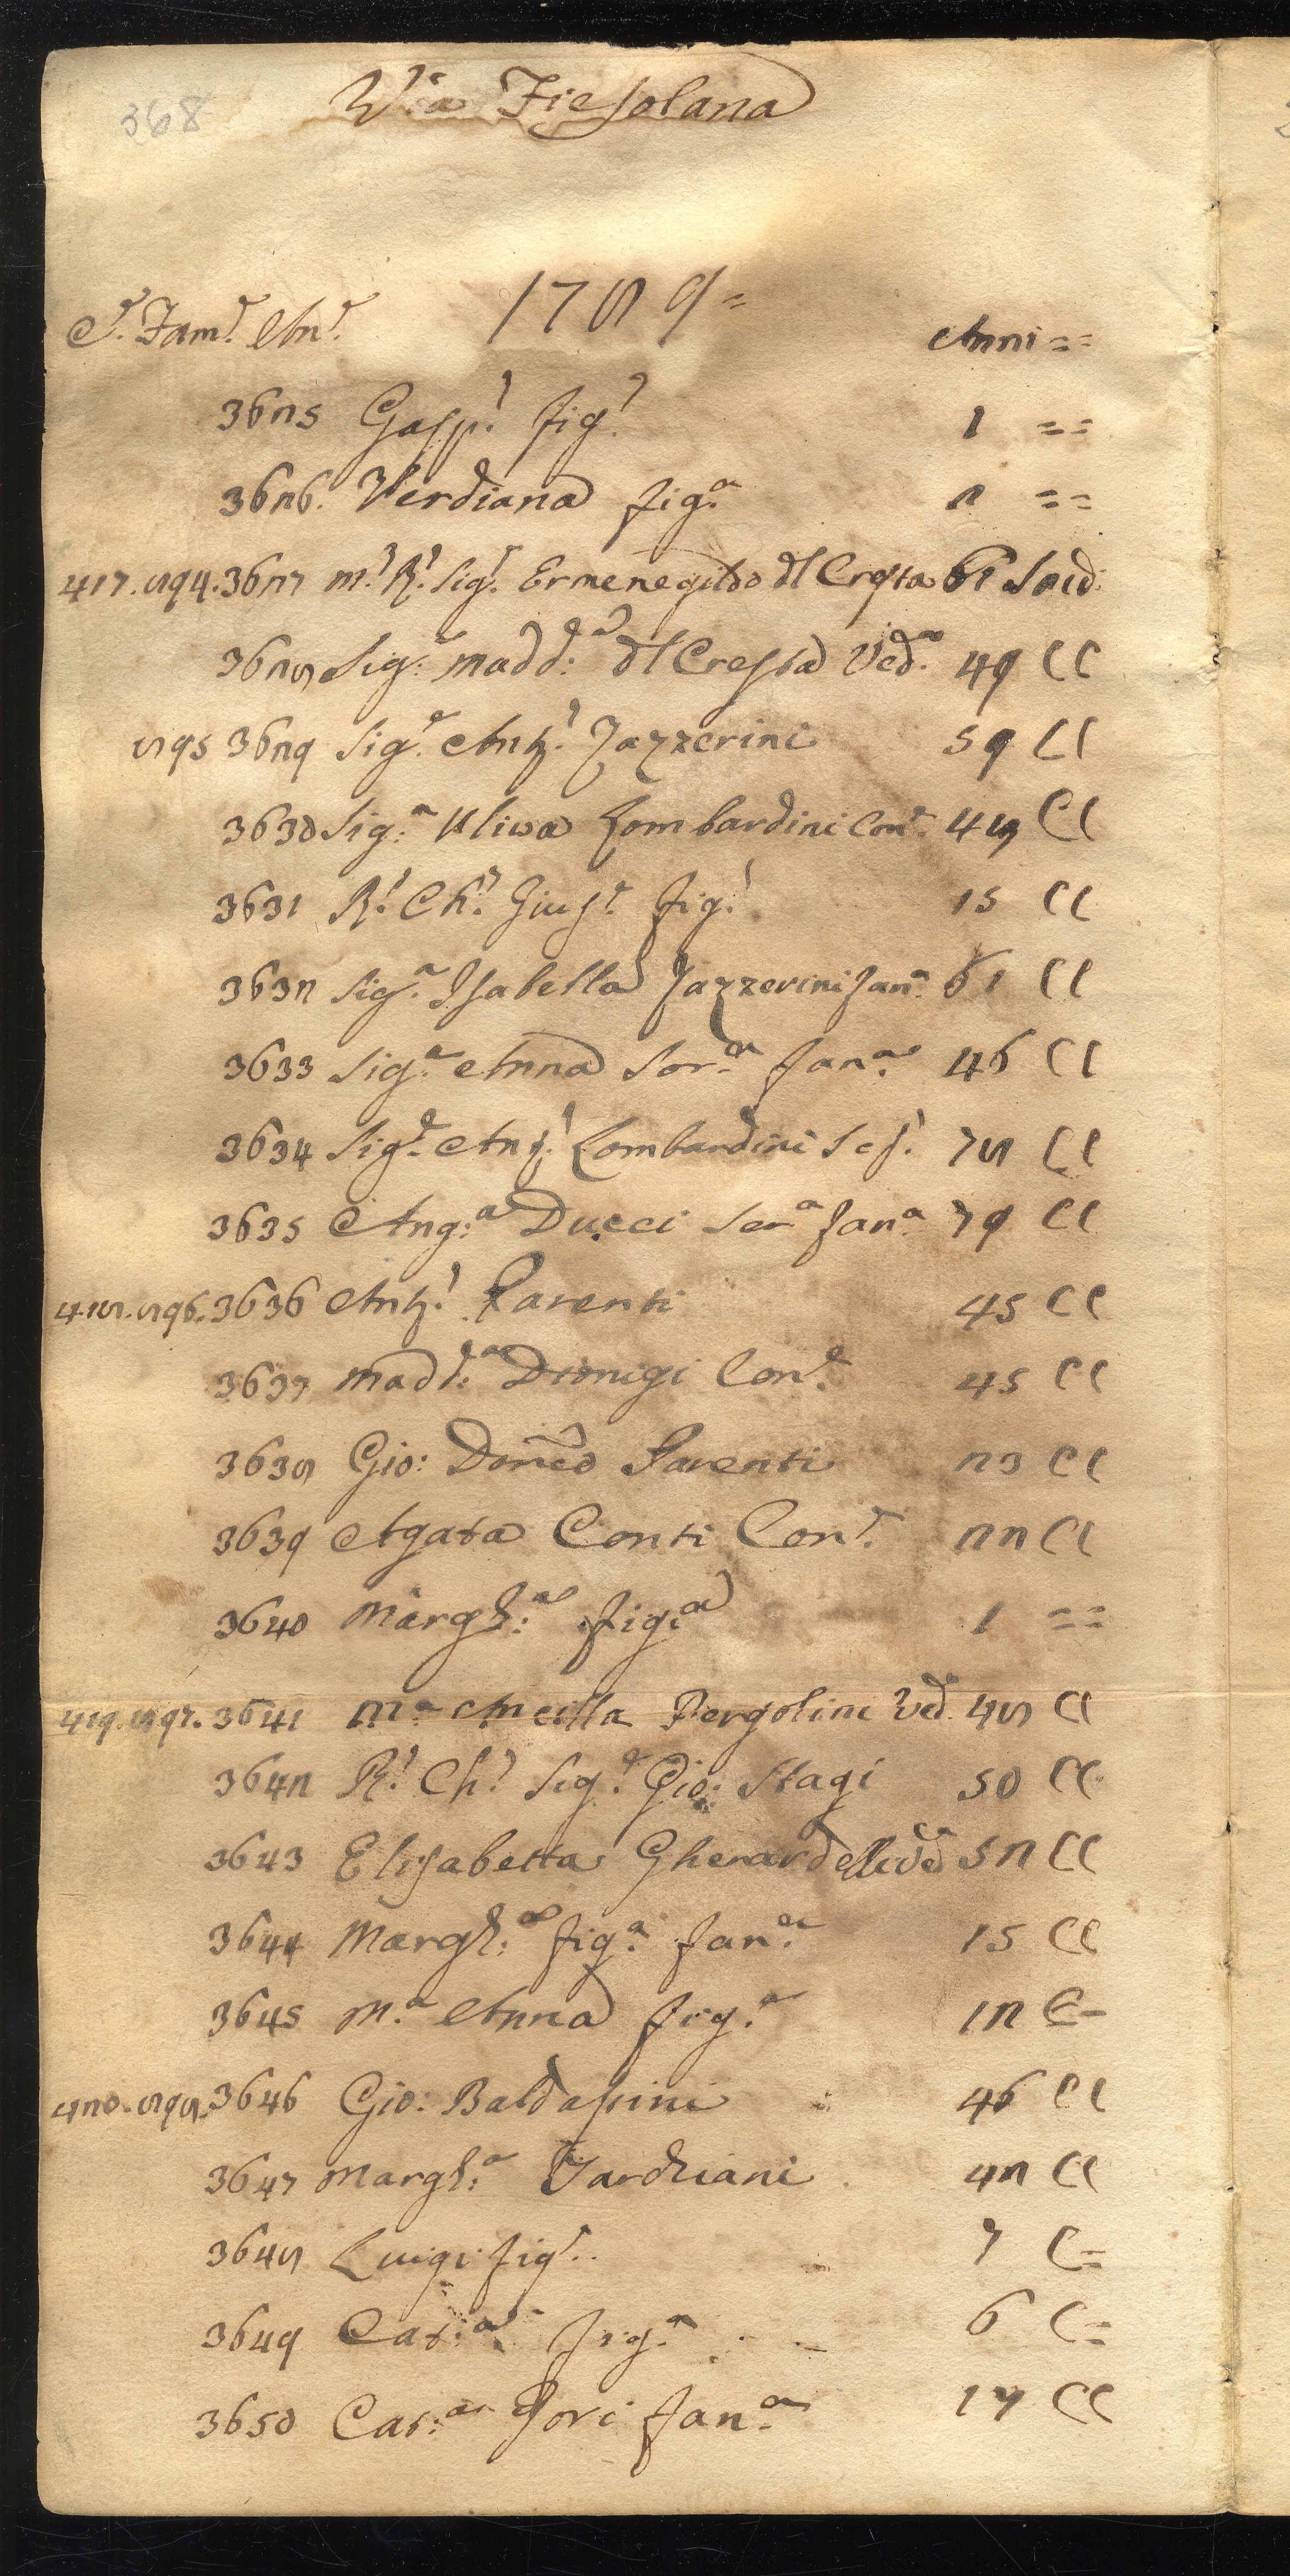 368
Via Fiesolana
S.ᵉ Fam.ᵉ An.ᵉ 1789=
Anni ==
3625 Gasp.ᵉ fig.ᵒ 1 ==
3626. Verdiana fig.ᵃ 2 ==
417. 894. 3627 M.ᵒ R.ᵒ Sig.ᵉ Ermenegildo dl Cresta 61 Sacd.
3628 Sig.ᵃ Madd.ᵃ dl Cresta Ved.ᵃ 49 CC
895 3629 Sig.ᵉ Ant.ᵒ Jazzerini 59 CC
3630 Sig.ᵃ Uliva Lombardini Con.ᵉ 48 CC
3631 R.ᵒ Ch.ᵒ Gius.ᵉ fig.ᵒ 15 CC
3632 Sig.ᵃ Isabella Jazzerini fan.ᵃ 61 CC
3633 Sig.ᵃ Anna Sor.ᵃ fan.ᵃ 46 CC
3634 Sig.ᵉ Ant.ᵒ Lombardini Sc.ᵒ 78 CC
3635 Ang.ᵃ Ducci Ser.ᵃ fan.ᵃ 79 CC
418. 896. 3636 Ant.ᵒ Parenti 45 CC
3637 Madd.ᵃ Dionigi Con.ᵉ 45 CC
3638 Gio: Dom̃co Parenti 23 CC
3639 Agata Conti Con.ᵉ 22 CC
3640 Margh.ᵃ fig.ᵃ 1 ==
419. 897. 3641 M.ᵃ Ancilla Pergolini Ved. 48 CC
3642 R.ᵒ Ch.ᵒ Sig.ᵉ Gio: Stagi 50 CC
3643 Elisabetta Gherardelli Vedᵃ 52 CC
3644 Margh.ᵃ fig.ᵃ fan.ᵃ 15 CC
3645 M.ᵃ Anna fig.ᵃ 12 C=
420. 898. 3646 Gio: Baldasini 46 CC
3647 Margh.ᵃ Tarchiani 42 CC
3648 Luigi fig.ᵒ 7 C=
3649 Cat.ᵃ fig.ᵃ 6 C=
3650 Cat.ᵃ Gori fan.ᵃ 17 CC